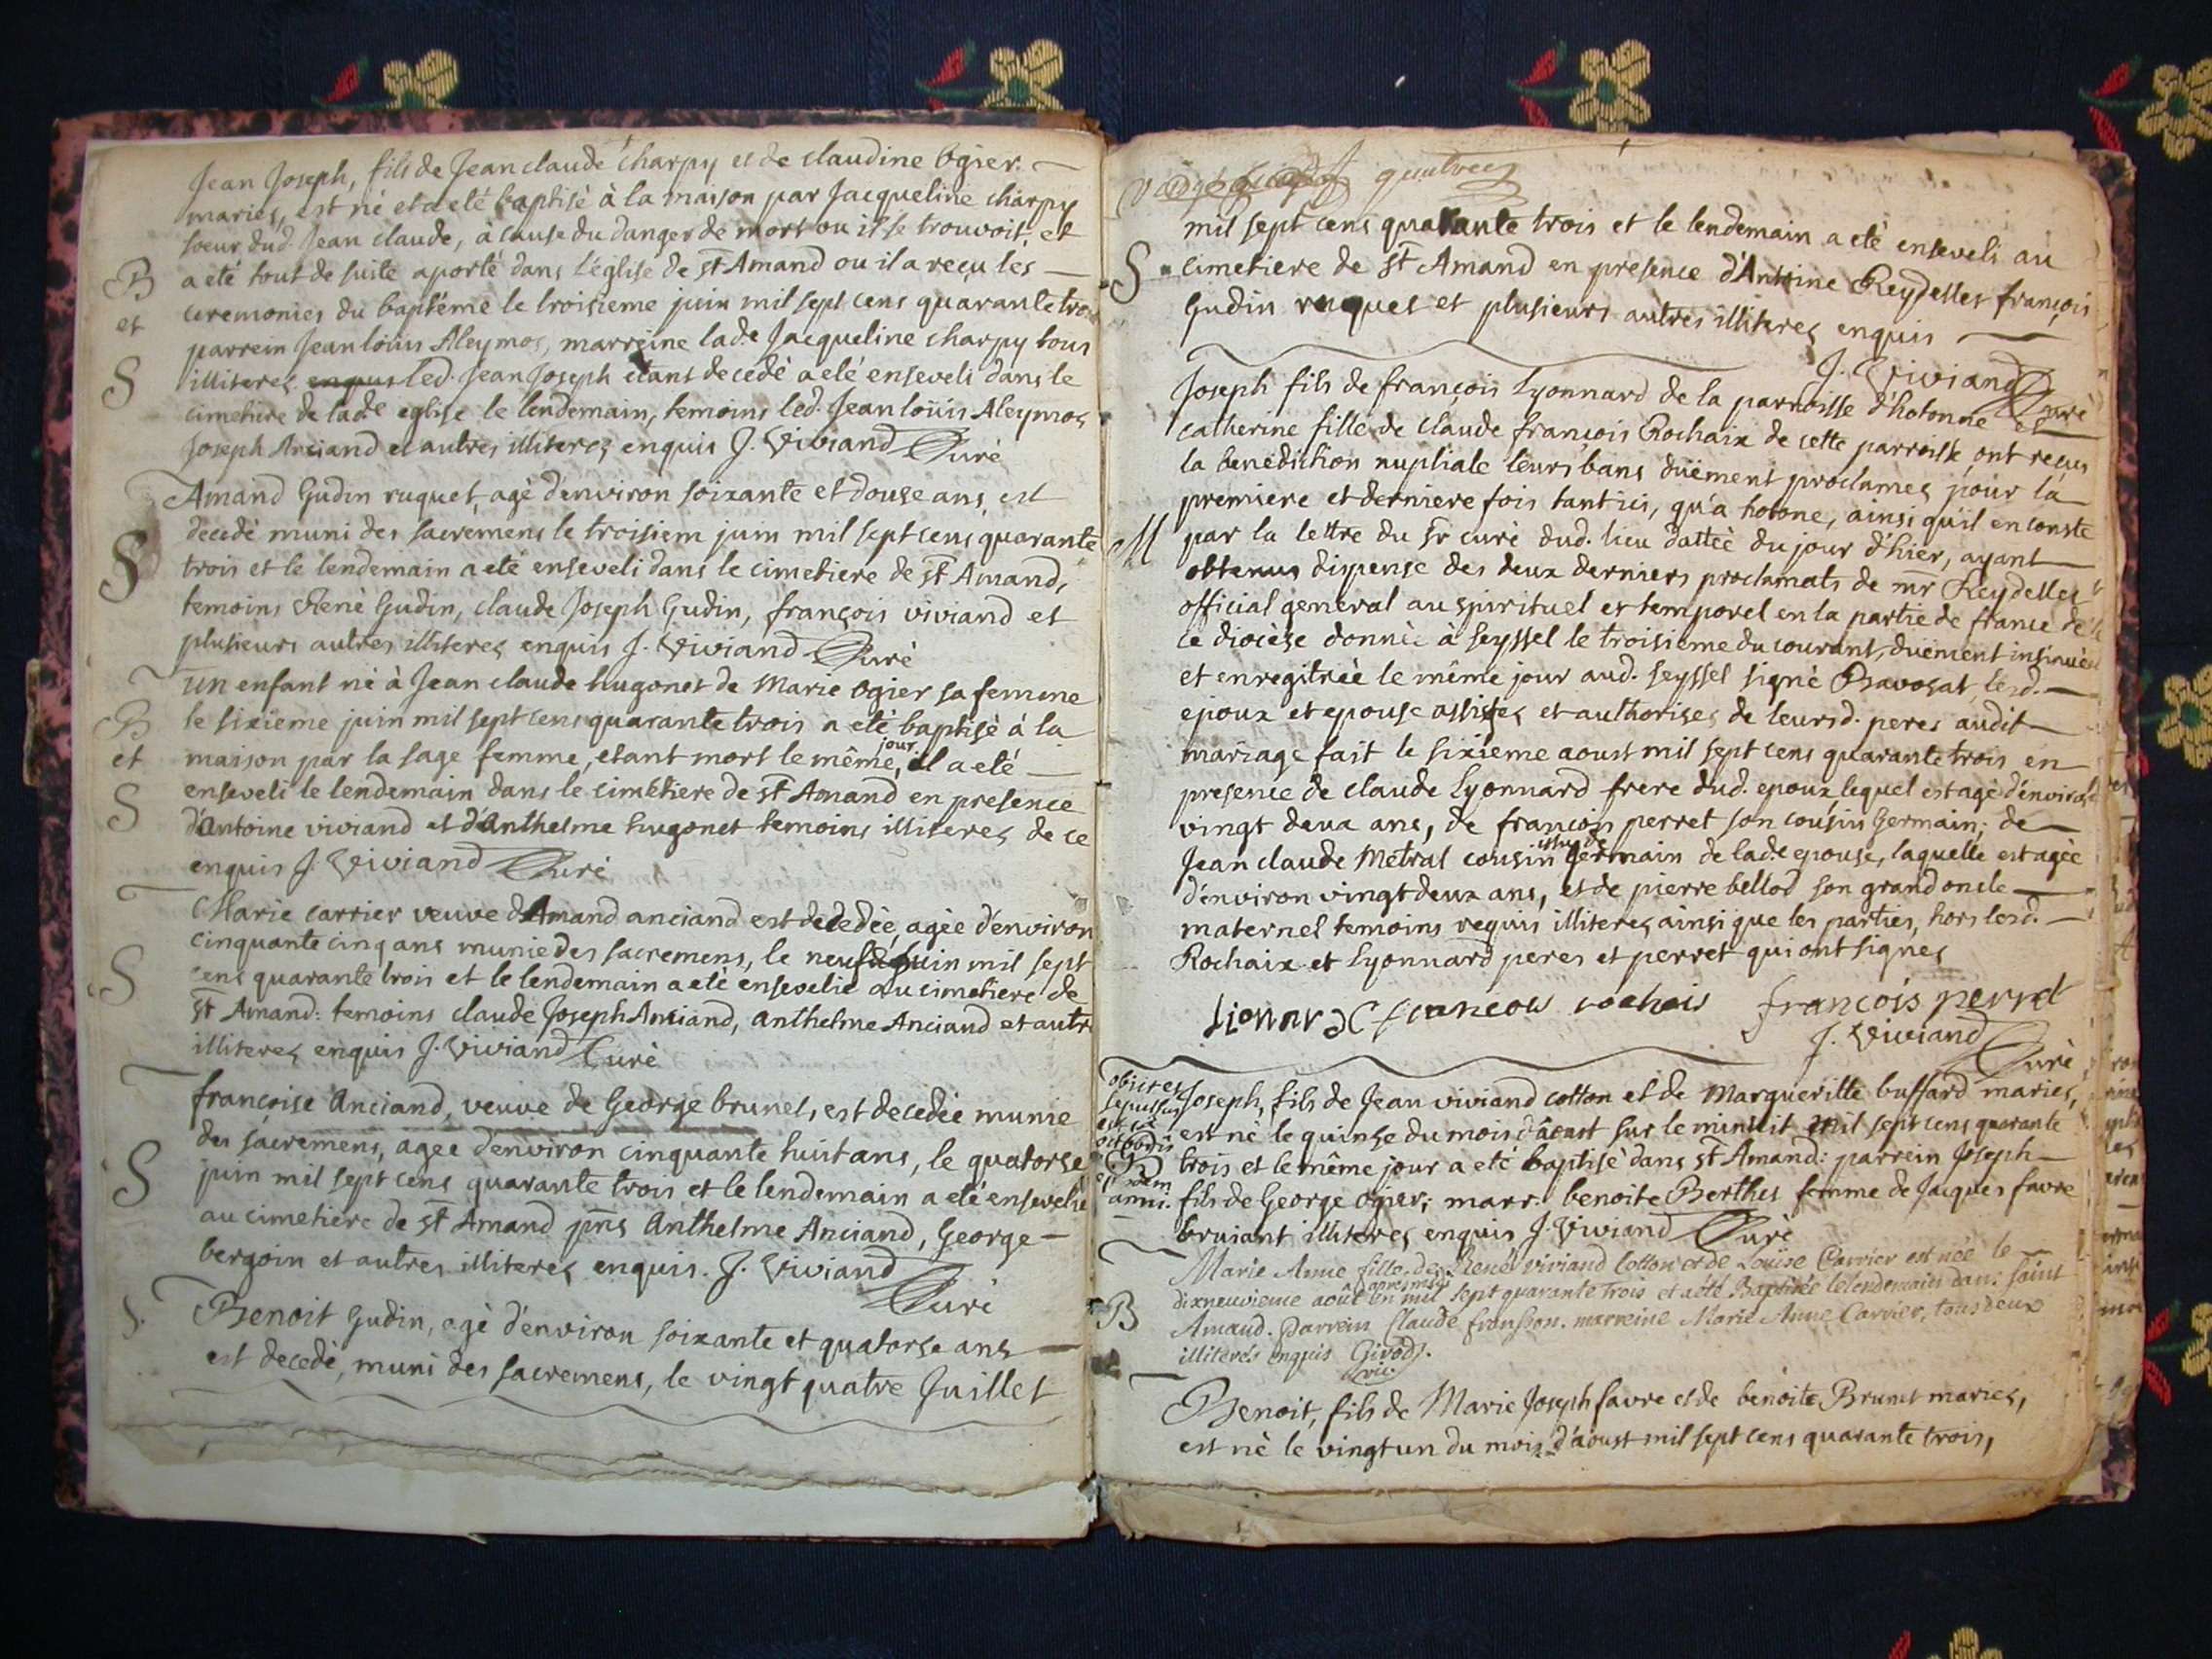 Jean Joseph, fils de Jean claude charpy et de claudine Ogier.
mariés, est né et a eté baptisé à la maison par Jacqueline charpy
soeur dud. Jean claude, à cause du danger de mort ou il se trouvoit, et
B a eté tout de suite aporté dans l'église de st Amand ou il a reçu les
et ceremonies du baptéme le troisieme juin mil sept cens quarante trois
parrein Jean loüis Aleymoz, marreine lad.e Jacqueline charpy tous
S illiteres enquis led. Jean Joseph etant decedé a eté enseveli dans le
cimetiere de lad.e eglise le lendemain, temoins led. Jean loüis Aleymoz
Joseph Anciand et autres illiteres enquis J. Viviand Curé
Amand Gudin ruquet, agé d'environ soixante et douse ans, est
decedé muni des sacremens le troisiem juin mil sept cens quarante
S trois et le lendemain a eté enseveli dans le cimetiere de st Amand,
temoins René Gudin, claude Joseph Gudin, françois viviand et
plusieurs autres illiteres enquis J. Viviand Curé
un enfant né à Jean claude hugonet de Marie Ogier sa femme
B le sixieme juin mil sept cens quarante trois a eté baptisé à la
et maison par la sage femme, etant mort le même jour, il a eté
S enseveli le lendemain dans le cimetiere de st Amand en presence
d'Antoine viviand et d'Anthelme hugonet temoins illiteres de ce
enquis J. Viviand Curé
Marie carrier veuve d'Amand anciand est decedée, agée d'environ
cinquante cinq ans munie des sacremens, le neuf juin mil sept
S cens quarante trois et le lendemain a eté ensevelie au cimetiere de
st Amand: temoins claude Joseph Anciand, Anthelme Anciand et autres
illiteres enquis J. Viviand Curé
françoise Anciand, veuve de George brunet, est decedée munie
des sacremens, agee d'environ cinquante huit ans, le quatorse
S juin mil sept cens quarante trois et le lendemain a eté ensevelie
au cimetiere de st Amand pns Anthelme Anciand, George
bergoin et autres illiteres enquis. J. Viviand
Curé
S. Benoit Gudin, agé d'environ soixante et quatorse ans
est decedé, muni des sacremens, le vingt quatre Juillet
mil sept cens quarante trois et le lendemain a eté enseveli au
S cimetiere de st Amand en presence d'Antoine Reydellet françois
Gudin ruquet et plusieurs autres illiteres enquis
J. Viviand Curé
Joseph fils de françois Lyonnard de la parroisse d'hotonne et
catherine fille de claude françois Rochaix de cette parroisse, ont reçus
la benediction nupliale leurs bans düement proclamez pour la
premiere et derniere fois tant ici, qu'a hotone, ainsi qu'il en conste
M par la lettre du sr curé dud. lieu dattée du jour d'hier, ayant
obtenus dispense des deux derniers proclamats de mr Reydellet
official general au spirituel et temporel en la partie de france de
ce diocèse donnée à Seyssel le troisieme du courant, düement insinuée
et enregitrée le même jour aud. Seyssel signé Bavosat, lesd.
epoux et epouse assistés et authorisés de leursd. peres audit
mariage fait le sixieme aoust mil sept cens quarante trois en
presence de claude Lyonnard frere dud. epoux lequel est agé d'environ
vingt deux ans, de françois perret son cousin Germain; de
Jean claude Metral cousin issu de Germain de lad.e epouse, laquelle est agée
d'environ vingt deux ans, et de pierre bellod son grand oncle
maternel temoins requis illiteres ainsi que les parties, hors lesd.
Rochaix et Lyonnard peres et perret qui ont signez
Lionnard francois rochais françois perret
J. Viviand
Curé
obiit et Joseph, fils de Jean viviand cotton et de Marguerite buffard mariez,
sepultus est né le quinse du mois d'âoust sur le minuit mil sept cens quarante
trois et le même jour a eté baptisé dans st Amand: parrein Joseph
anni. fils de George Ogier; marr. benoite Berthet femme de Jacques favre
bruiant illiteres enquis J. Viviand Curé
Marie Anne fille de René Viviand Cotton et de Louise Carrier est née le
dixneuvieme août mil sept quarante trois et a été Baptisée le lendemain dans saint
B Amand. Parrein Claude . marreine Marie Anne Carrier, tous deux
illiterés enquis Girod J.
Benoit, fils de Marie Joseph favre et de benoite Brunet mariez,
est né le vingt un du mois d'aoust mil sept cens quarante trois,